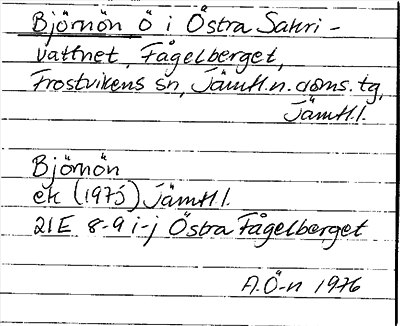 Björnön ö i Östra Sakri-
vattnet, Fågelberget,
Frostvikens sn, Jämtl.n. doms. tg,
Jämtl.l.
Björnön
ek (1975) Jämtl l.
21E 8-9 i-j Östra Fågelberget
A.Ö-n 1976